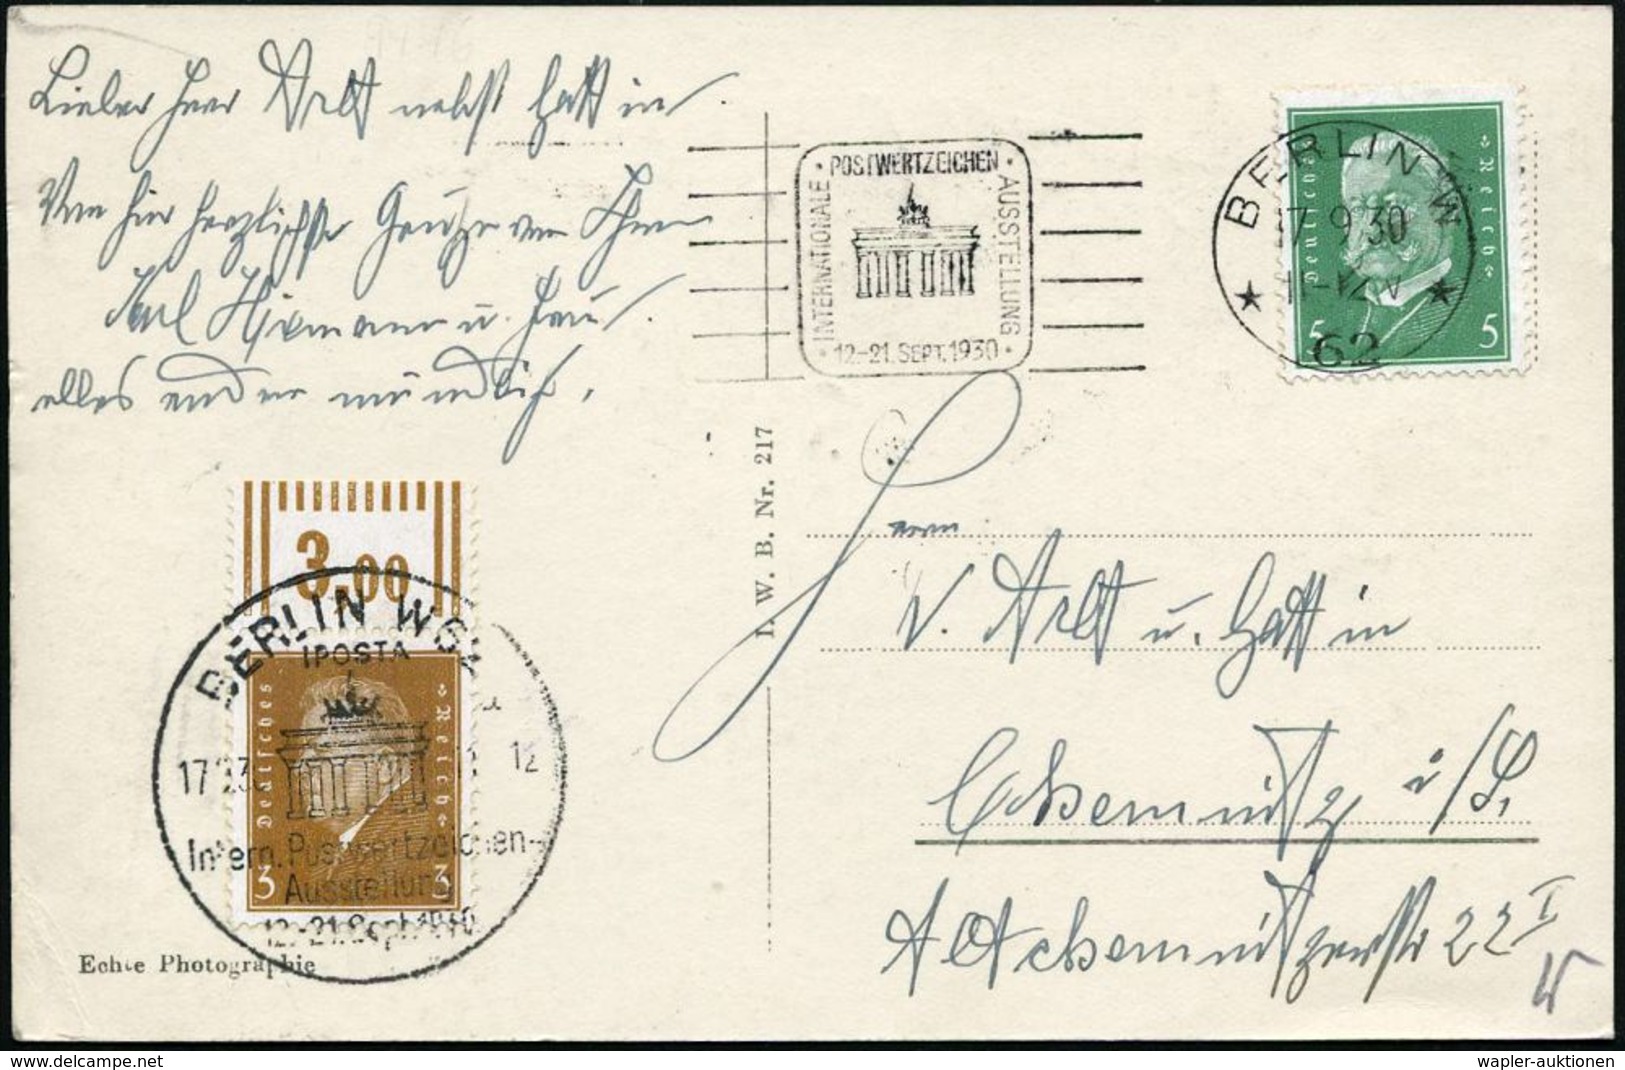 Lieber Herr Arlt nebst Gattin.
Von hier herzlichste Grüße von Ihrem
Karl u. Frau.
alles andere mündlich.
INTERNATIONALE
POSTWERTZEICHEN
AUSSTELLUNG
12.-21. SEPT. 1930
BERLIN W
17.9.30
62
Deutsches Reich
5 5
3.00
BERLIN W 62
IPOSTA
Deutsches Reich
17 9 30 12
Intern. Postwertzeichen-
Ausstellung
12.-21. Sept. 1930
3 3
Echte Photographie
I. W. B. Nr. 217
Herrn
Arlt u. Gattin
Chemnitz i/S.
Altchemnitzerstr 22 I
delcampe.net
wapler-auktionen